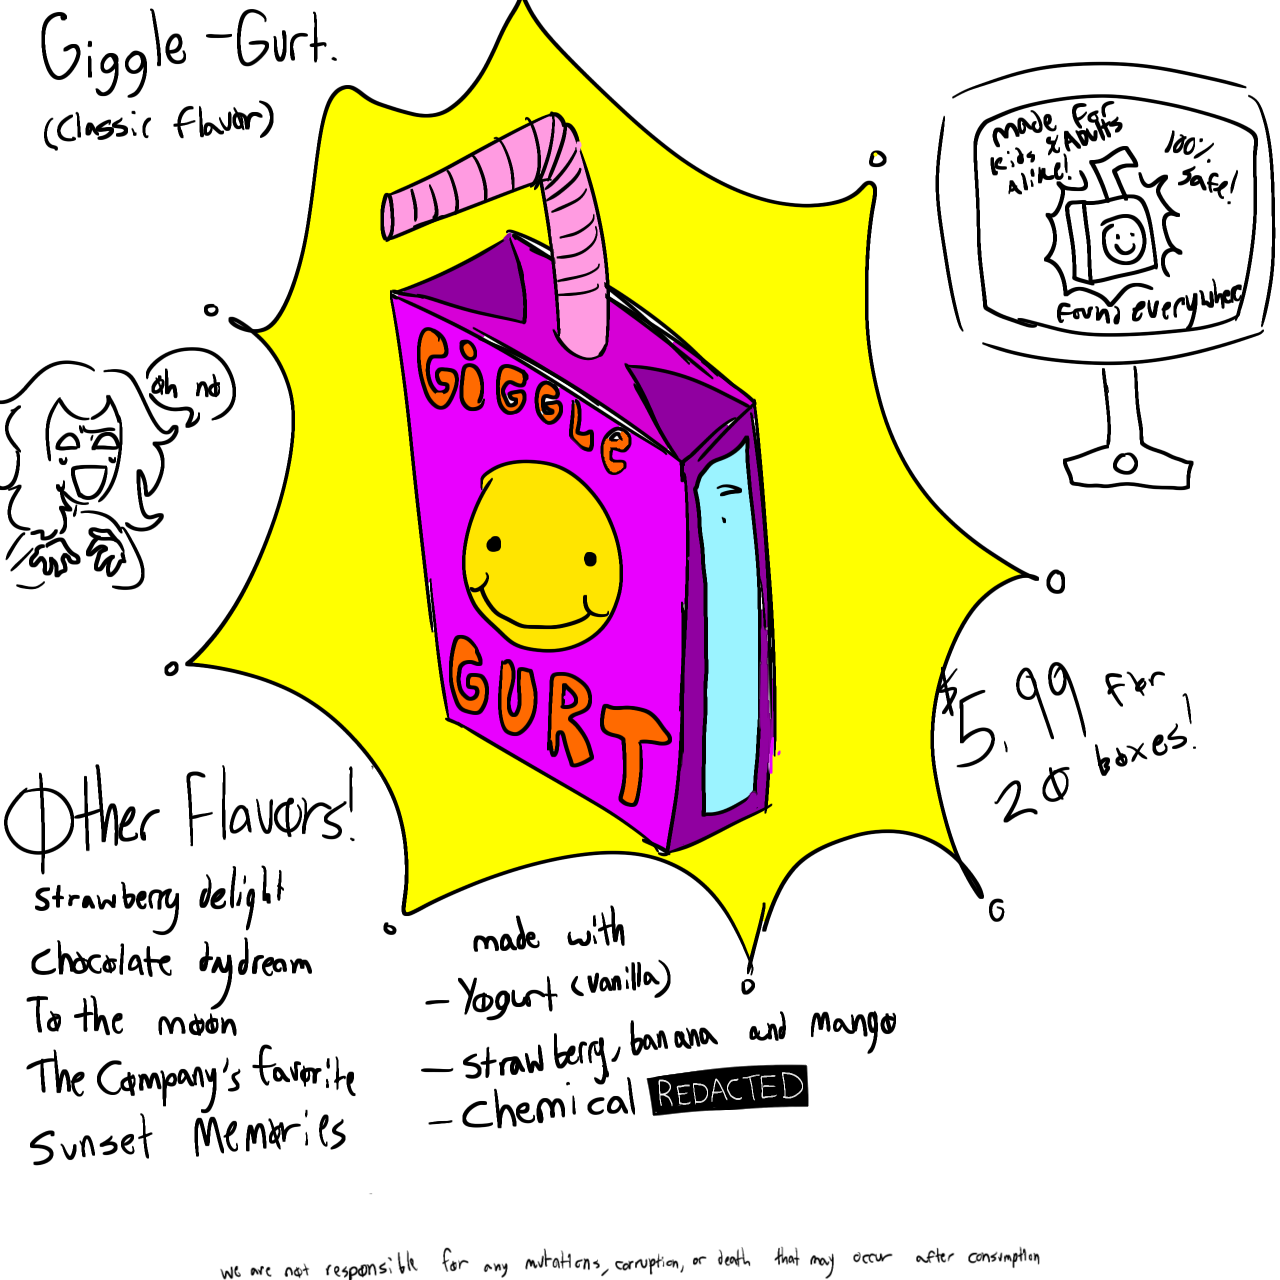 Giggle-Gurt.
(Classic flavor)
made for
kids & Adults
Alike!
100%
safe!
found everywhere
oh no
GiGGLe
GURT
$5.99 for
20 boxes!
Other Flavors!
strawberry delight
chocolate daydream
To the moon
The Company's favorite
Sunset Memories
made with
- Yogurt (vanilla)
- strawberry, banana and mango
- Chemical REDACTED
we are not responsible for any mutations, corruption, or death that may occur after consumption